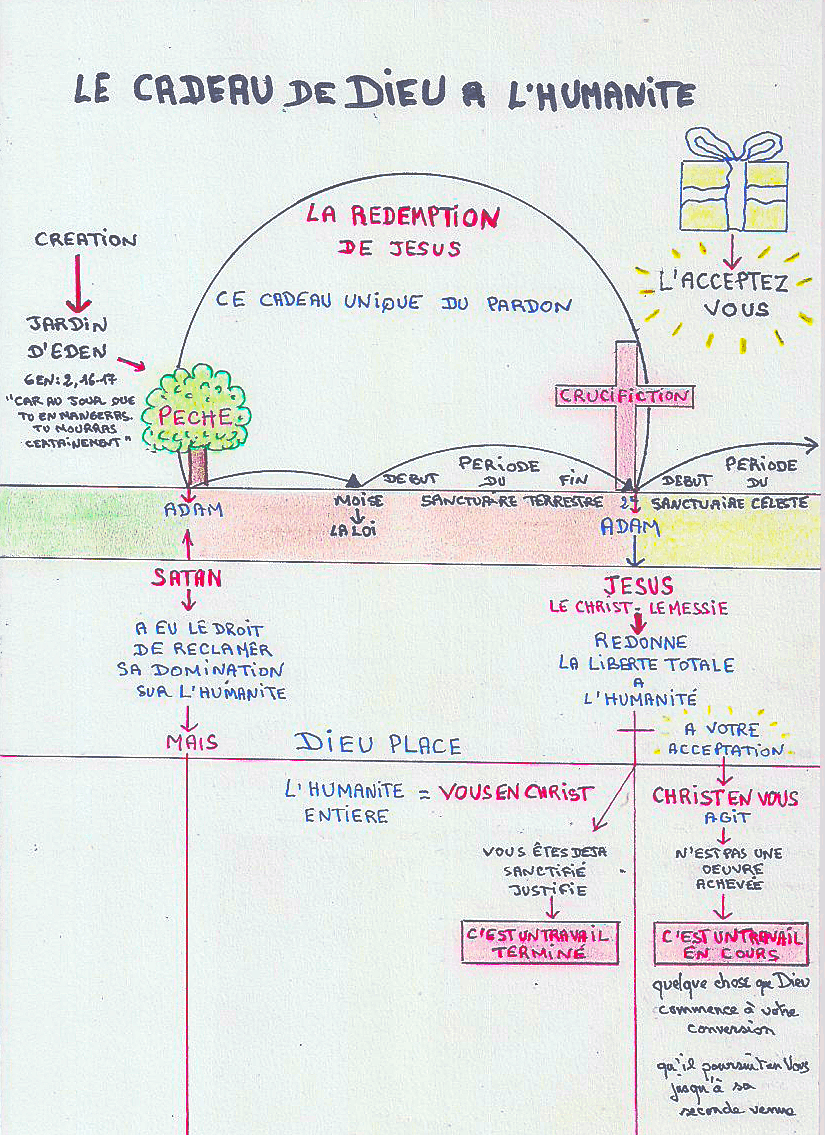 LE CADEAU DE DIEU A L'HUMANITE
LA REDEMPTION
DE JESUS
CE CADEAU UNIQUE DU PARDON
L'ACCEPTEZ
VOUS
CREATION
JARDIN
D'EDEN
GEN: 2, 16-17
"CAR AU JOUR QUE
TU EN MANGERAS.
TU MOURRAS
CERTAINEMENT"
PECHE
CRUCIFICTION
DEBUT PERIODE FIN
DU
DEBUT PERIODE
DU
MOISE
LA LOI
SANCTUAIRE TERRESTRE
SANCTUAIRE CELESTE
ADAM
2e
ADAM
SATAN
A EU LE DROIT
DE RECLAMER
SA DOMINATION
SUR L'HUMANITE
MAIS
JESUS
LE CHRIST - LE MESSIE
REDONNE
LA LIBERTE TOTALE
A
L'HUMANITÉ
A VOTRE
ACCEPTATION
DIEU PLACE
L'HUMANITE = VOUS EN CHRIST
ENTIERE
VOUS ÊTES DEJA
SANCTIFIÉ
JUSTIFIE
C'EST UN TRAVAIL
TERMINÉ
CHRIST EN VOUS
AGIT
N'EST PAS UNE
OEUVRE
ACHEVÉE
C'EST UN TRAVAIL
EN COURS
quelque chose que Dieu
commence à votre
conversion
qu'il poursuit en Vous
jusqu'à sa
seconde venue